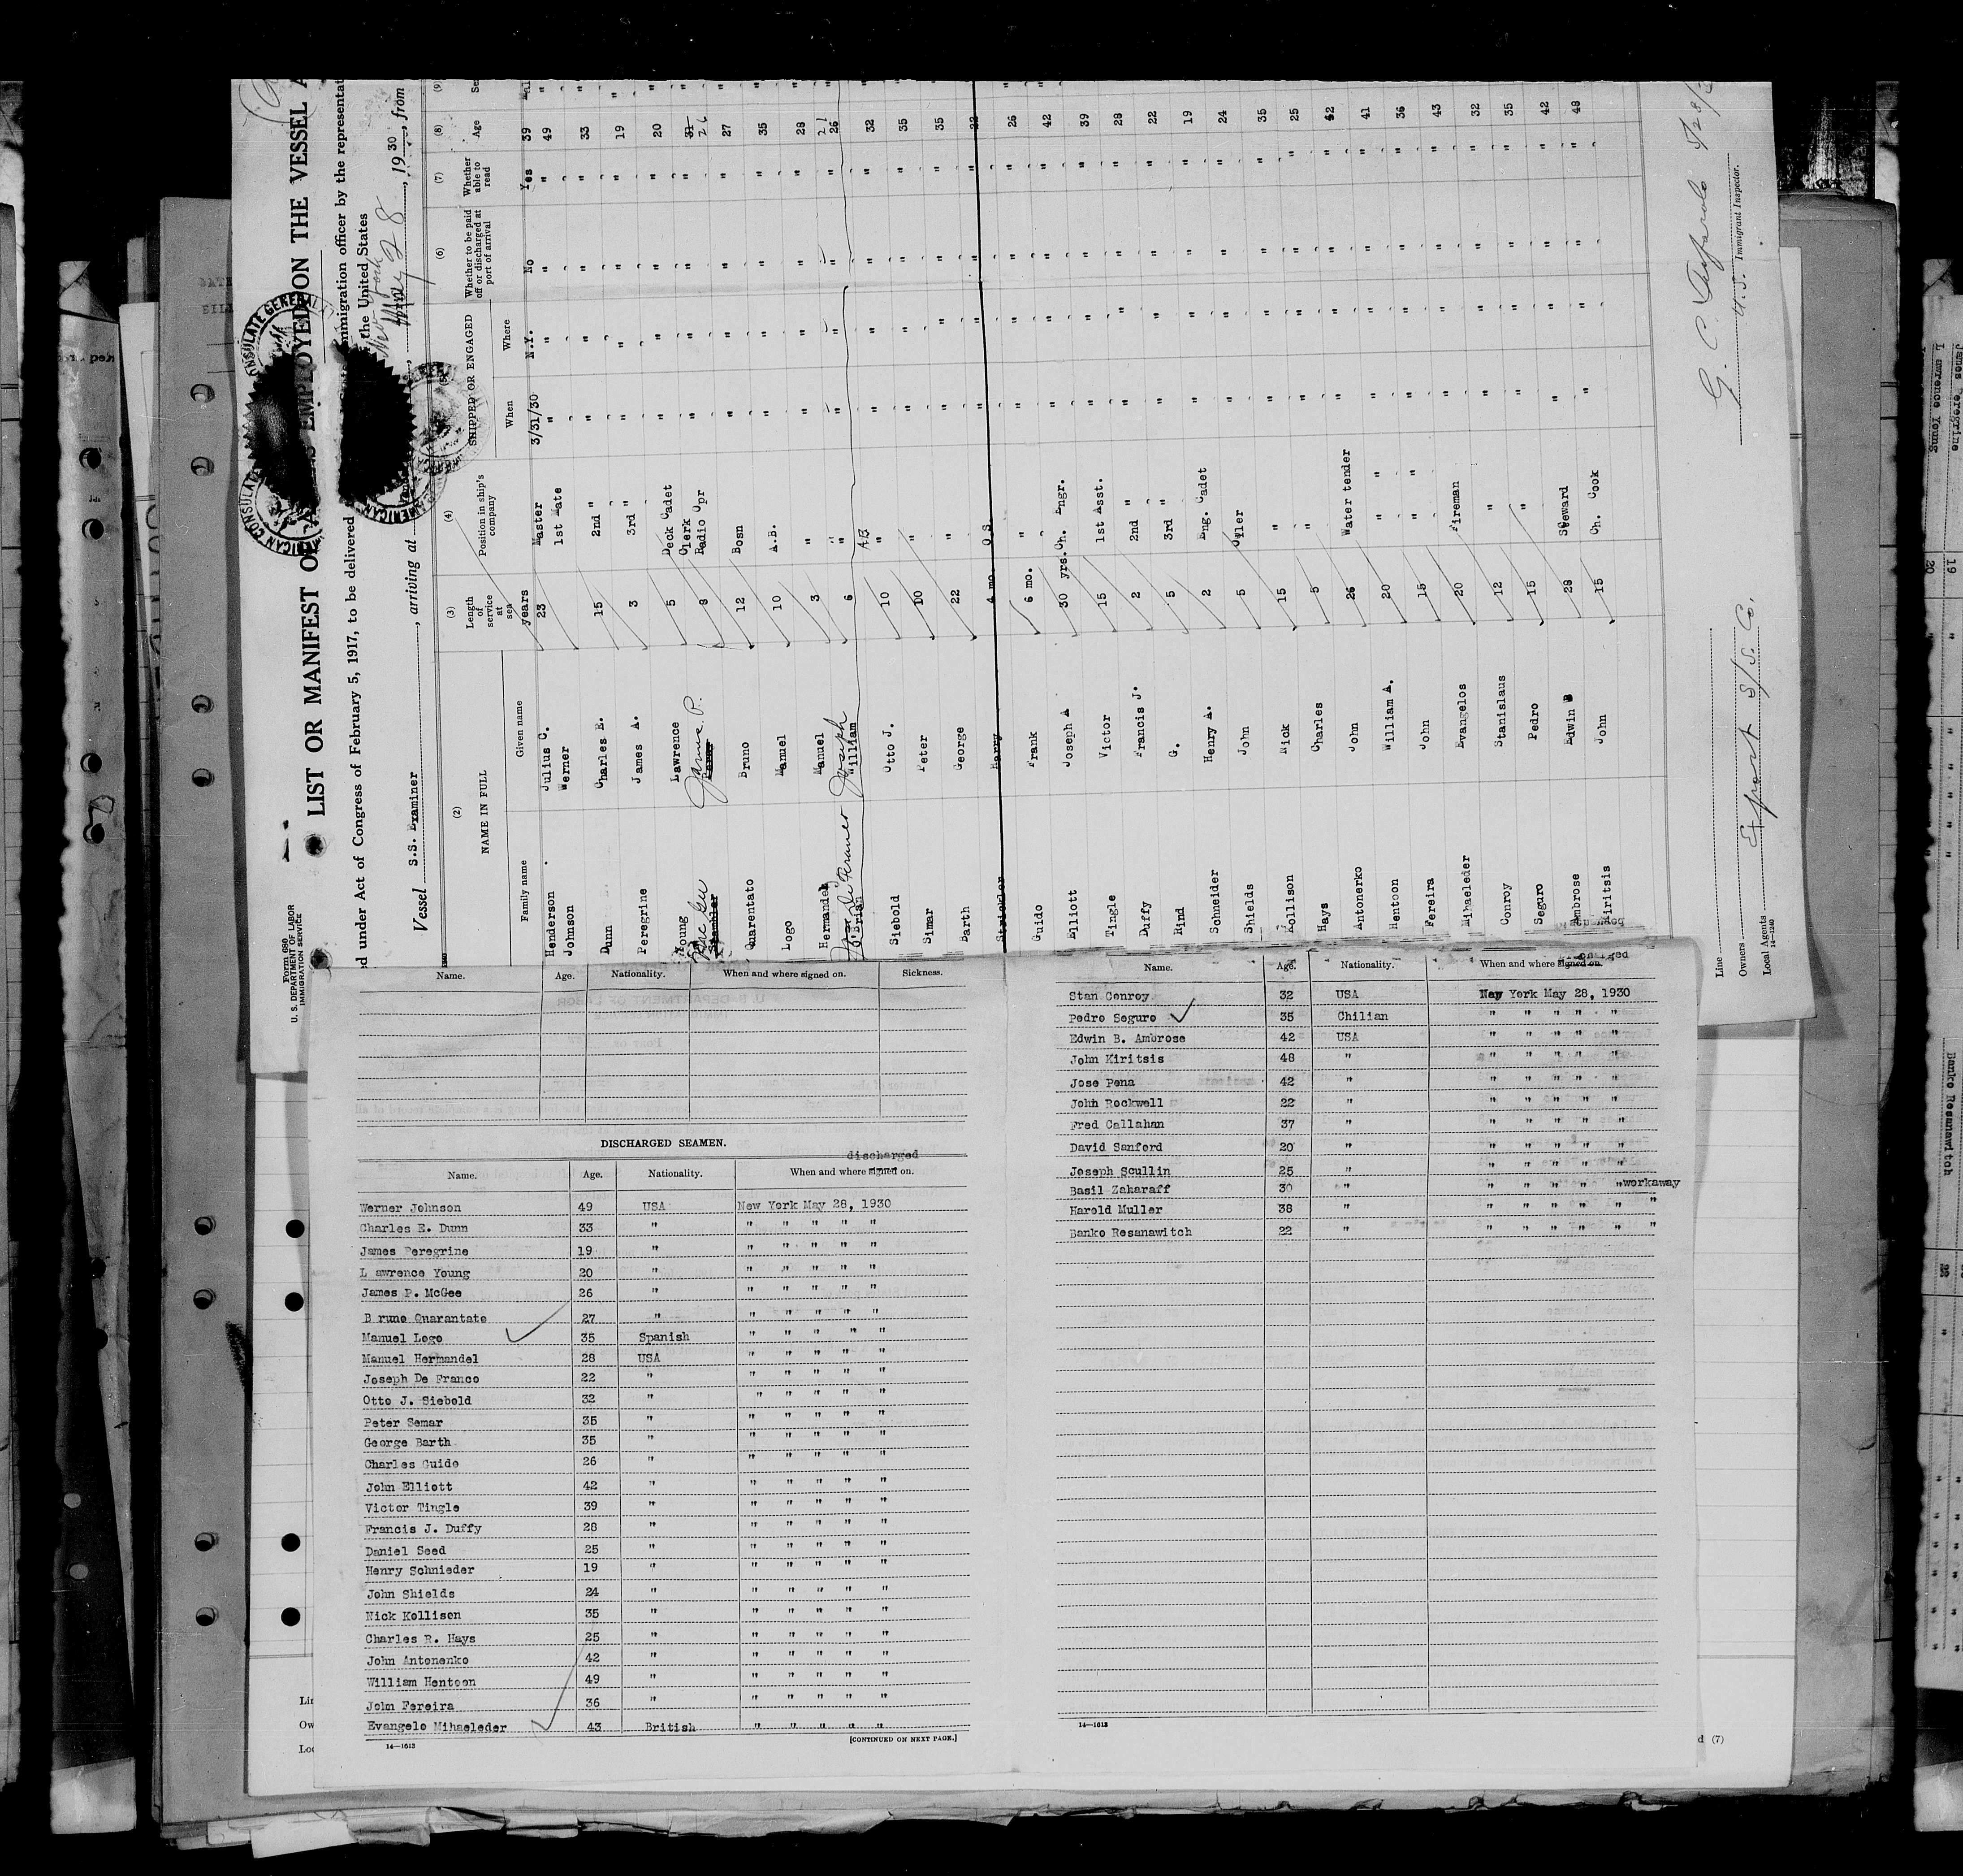 Form 680
U. S. DEPARTMENT OF LABOR
IMMIGRATION SERVICE
LIST OR MANIFEST OF EMPLOYED ON THE VESSEL A
ed under Act of Congress of February 5, 1917, to be delivered immigration officer by the representat
the United States
Vessel S.S. Examiner, arriving at New York May 28, 1930, from
(2) (3) (4) SHIPPED OR ENGAGED (6) (7) (8) (9)
NAME IN FULL Length of service at sea Position in ship's company When Where Whether to be paid off or discharged at port of arrival Whether able to read Age Se
Family name Given name
years
Henderson Julius C. 23 Master 3/31/30 N.Y. No Yes 39 Mal
Johnson Werner 1st Mate " " " " 49 "
Dunn Charles E. 15 2nd " " " " " 33 "
Peregrine James A. 3 3rd " " " " " 19 "
Young Lawrence 5 Deck Cadet " " " " 20 "
Mc Gee James P. 8 Clerk Radio Opr " " " " 31 26 "
Quarentato Bruno 12 Bosn " " " " 27 "
Logo Manuel 10 A.B. " " " " 35 "
Hernandel Manuel 3 " " " " " 28 "
O'Brian William 6 " " " " " 26 21 "
Joseph AB
Siebold Otto J. 10 " " " " " 32 "
Simar Peter 10 " " " " " 35 "
Barth George 22 " " " " " 35 "
Strickler Harry 4 mo. O.S. " " " " 22
Guido Frank 6 mo. " " " " " 26 "
Elliott Joseph A 30 yrs. Ch. Engr. " " " " 42 "
Tingle Victor 15 1st Asst. " " " " 39
Duffy Francis J. 2 2nd " " " " " 28
Rind G. 5 3rd " " " " " 22
Schneider Henry A. 2 Eng. Cadet " " " " 19
Shields John 5 Oiler " " " " 24
Kollison Nick 15 " " " " " 35
Hays Charles 5 " " " " " 25
Antonerko John 26 Water tender " " " " 42
Hentoon William A. 20 " " " " " 41
Fereira John 15 " " " " " 36
Mihaeleder Evangelos 20 Fireman " " " " 43
Conroy Stanislaus 12 " " " " " 32
Seguro Pedro 15 " " " " " 35
Ambrose Edwin B 28 Steward " " " " 42
Kiritsis John 15 Ch. Cook " " " " 48
Line
Owners Export S/S. Co.
Local Agents
14—1240
U.S. Immigrant Inspector.
Name. Age. Nationality. When and where signed on. Sickness.
DISCHARGED SEAMEN.
discharged
Name. Age. Nationality. When and where signed on.
Werner Johnson 49 USA New York May 28, 1930
Charles E. Dunn 33 " " " " " "
James Peregrine 19 " " " " " "
L awrence Young 20 " " " " " "
James P. McGee 26 " " " " " "
B runo Quarantate 27 " " " " " "
Manuel Logo 35 Spanish " " " " "
Manuel Hermandel 28 USA " " " " "
Joseph De Franco 22 " " " " " "
Otto J. Siebold 32 " " " " " "
Peter Semar 35 " " " " " "
George Barth 35 " " " " " "
Charles Guido 26 " " " " " "
John Elliott 42 " " " " " "
Victor Tingle 39 " " " " " "
Francis J. Duffy 28 " " " " " "
Daniel Seed 25 " " " " " "
Henry Schnieder 19 " " " " " "
John Shields 24 " " " " " "
Nick Kollisen 35 " " " " " "
Charles R. Hays 25 " " " " " "
John Antonenko 42 " " " " " "
William Hentoon 49 " " " " " "
John Fereira 36 " " " " " "
Evangelo Mihaeleder 43 British " " " " "
14—1613
[CONTINUED ON NEXT PAGE.]
Name. Age. Nationality. When and where signed on.
Stan Conroy 32 USA New York May 28, 1930
Pedro Seguro 35 Chilian " " " " "
Edwin B. Ambrose 42 USA " " " " "
John Kiritsis 48 " " " " " "
Jose Pena 42 " " " " " "
John Rockwell 22 " " " " " "
Fred Callahan 37 " " " " " "
David Sanford 20 " " " " " "
Joseph Scullin 25 " " " " " "
Basil Zakaraff 30 " " " " " " workaway
Harold Muller 38 " " " " " " "
Banko Resanawitch 22 " " " " " " "
14—1613
(7)
James Peregrine 19
L awrence Young 20
Banko Resanawitch 22